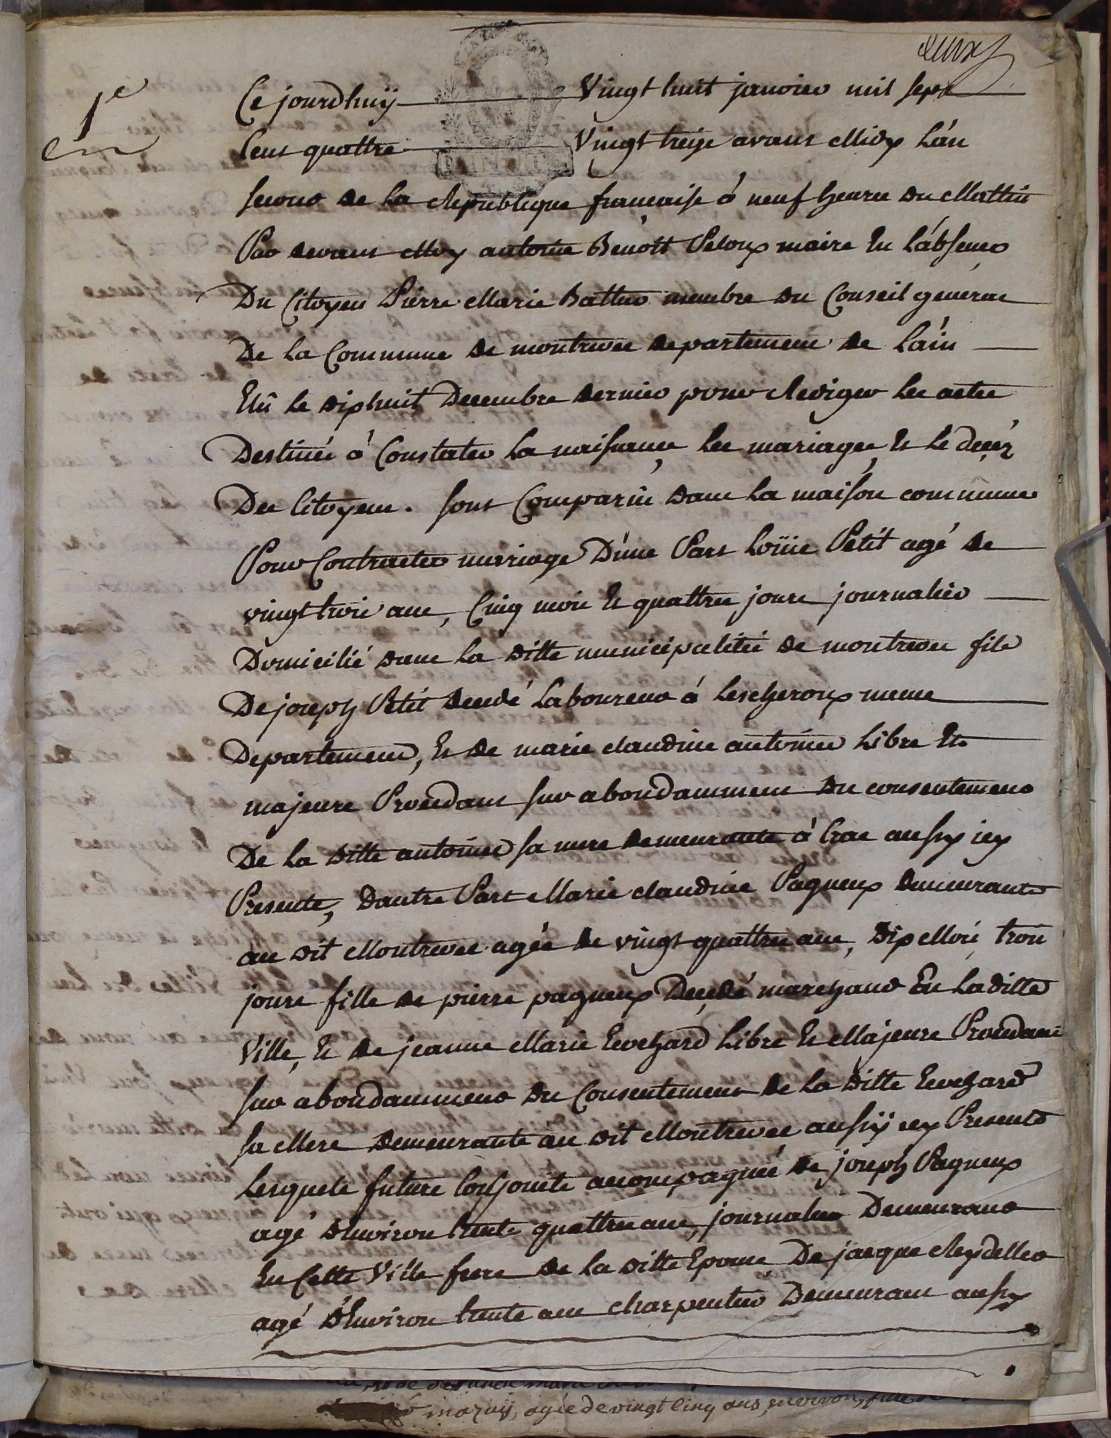 deux
1e
Ce jourdhuÿ Vingt huit janvier mil sept
Cent quattre Vingt treize avant Midy L'an
second de la Republique francaise à neuf heures du Mattin
Par devant Moy antoine Benôit Peloux maire En L'absence
Du Citoyen Pierre Marie membre du Conseil general
De la Commune de montrevel departement de L'ain
Elû le dixhuit Decembre dernier pour Rediger les actes
Destinés à Constater la naissance les mariages et le decéz
Des Citoyens. sont Comparûs dans la maison commune
Pour Contracter mariage D'une Part Loüis Petit agé de
vingt trois ans, Cinq mois et quattre jours journalier
Domicilié dans la ditte municipalité de montrevel fils
De joseph Petit decedé Laboureur à Lescheroux meme
Departement, et de marie claudine antoinet Libre et
majeure Procedant sur abondamment du consentement
De la ditte antoinet sa mere demeurante à Cras aussy icy
Presente, dautre Part Marie claudine Pagneux demeurante
au dit Montrevel agée de vingt quattre ans, dix Mois, trois
jours fille de pierre pagneux Decedé marchand En La ditte
Ville, et de jeanne Marie Evechard Libre et Majeure Procedant
sur abondamment du Consentement de la ditte Evechard
sa Mere demeurante au dit Montrevel aussÿ icy Presente
Lesquels futurs Conjoints accompagnés de joseph Pagneux
agé d'Environ trente quattre ans, journalier Demeurant
En Cette Ville frere de la ditte Epouse De jacque Reydellet
agé d'Environ trente ans charpentier Demeurant aussy
agée de vingt cinq ans environ, fille